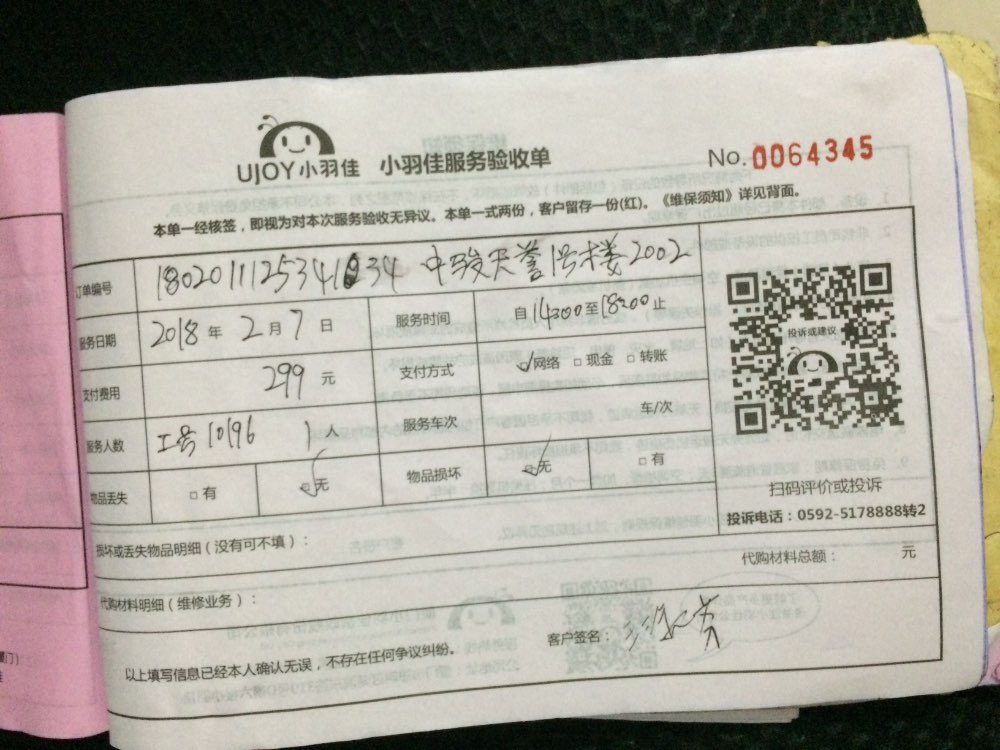 UJOY小羽佳 小羽佳服务验收单 No. 0064345
本单一经核签，即视为对本次服务验收无异议。本单一式两份，客户留存一份(红)。《维保须知》详见背面。
订单编号 中骏天誉1号楼2002
服务日期 2018年2月7日 服务时间 自14:00至18:00止
支付费用 299元 支付方式 网络 现金 转账
服务人数 工号10196 1人 服务车次 车/次
物品丢失 有 无 物品损坏 无 有
投诉或建议
扫码评价或投诉
投诉电话：0592-5178888转2
损坏或丢失物品明细（没有可不填）：
代购材料总额： 元
代购材料明细（维修业务）：
客户签名：
以上填写信息已经本人确认无误，不存在任何争议纠纷。